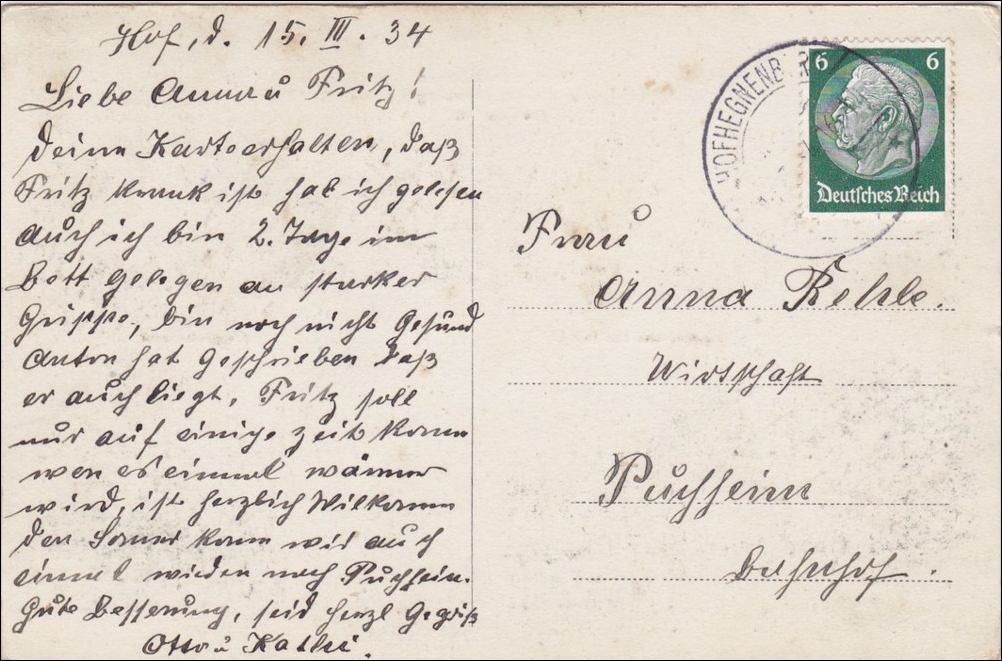 Hof, d. 15. III. 34
Liebe Anna u Fritz!
deine Karte erhalten, daß
Fritz krank ist hab ich gelesen
auch ich bin 2. Tage im
Bett gelegen an starker
Grippe, bin noch nicht Gesund
Anton hat geschrieben daß
er auch liegt, Fritz soll
nur auf einige zeit komm
wen es einmal wärmer
wird, ist herzlich Wilkomm
den Somer komm wir auch
einmal wieder nach Puchheim.
Gute Besserung, seid herzl Gegrüß
Otto u Kathi.
HOFHEGNENB
6 6
Deutsches Reich
Frau
Anna
Wirtschaft
Puchheim
Bahnhof.